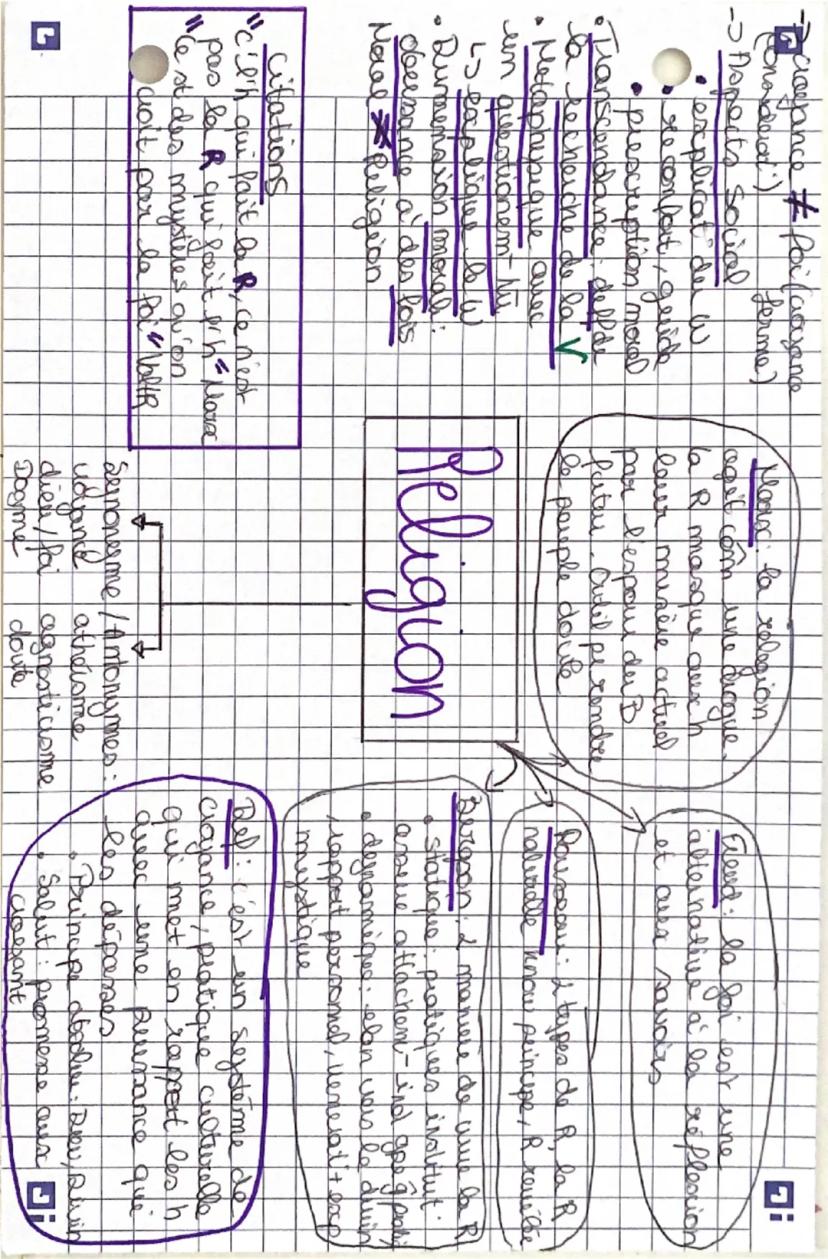 -> croyance ≠ foi (croyance
(considerat°) ferme)
-> Aspects social
• explicat° du W
• reconfort, guide
• prescription moral
• Transcendance: delà de
la recherche de la V
• Metaphysique avec
un questionem-t
↳ explique le W
• Dimension morale:
obeissance à des lois
Morale ≠ Religion
Citations
"c'l'h qui fait la R, ce n'est
pas la R qui fait l'h" Marx
"c'est des mystères qu'on
croit par la foi" VoltR
Marx: la religion
agit com̂ une drogue.
la R masque aux h
leur misère actuel
par l'espoir du B
futur. Outil pr rendre
le peuple docile
Religion
Synonyme / Antonymes:
croyand athéisme
dieu/foi agnosticisme
Dogme doute
Freud: la foi est une
alternative à la réflexion
et aux savoirs
Rousseau: 2 types de R la R
naturelle principe, R revélée
Bergson: 2 manière de vivre la R
• statique: pratiques institut°
assure attachem-t ind gpe
• dynamique: elan vers le divin
rapport personnel, venerat° + exp
mystique
Def: c'est un système de
croyance/pratique culturelle
qui met en rapport les h
avec une puissance qui
les dépasses
• Principe absolu: Dieu, Divin
• Salut: promesse aux
croyant